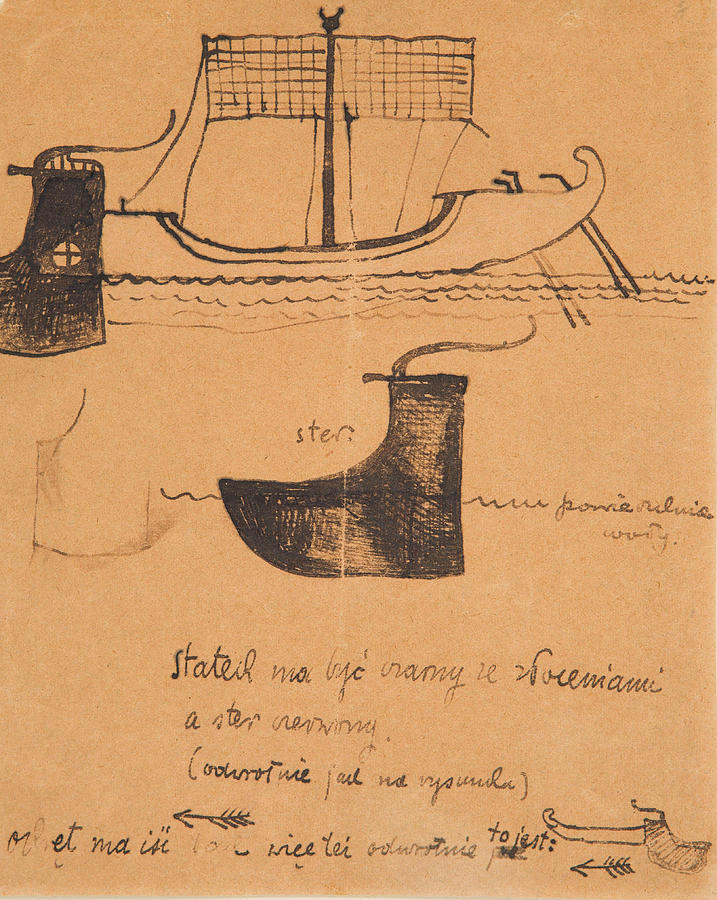 ster:
powierzchnia
wody.
Statek ma być czarny ze złoceniami
a ster czerwony.
(odwrotnie jak na rysunku)
okręt ma iść tak więc leci odwrotnie to jest: